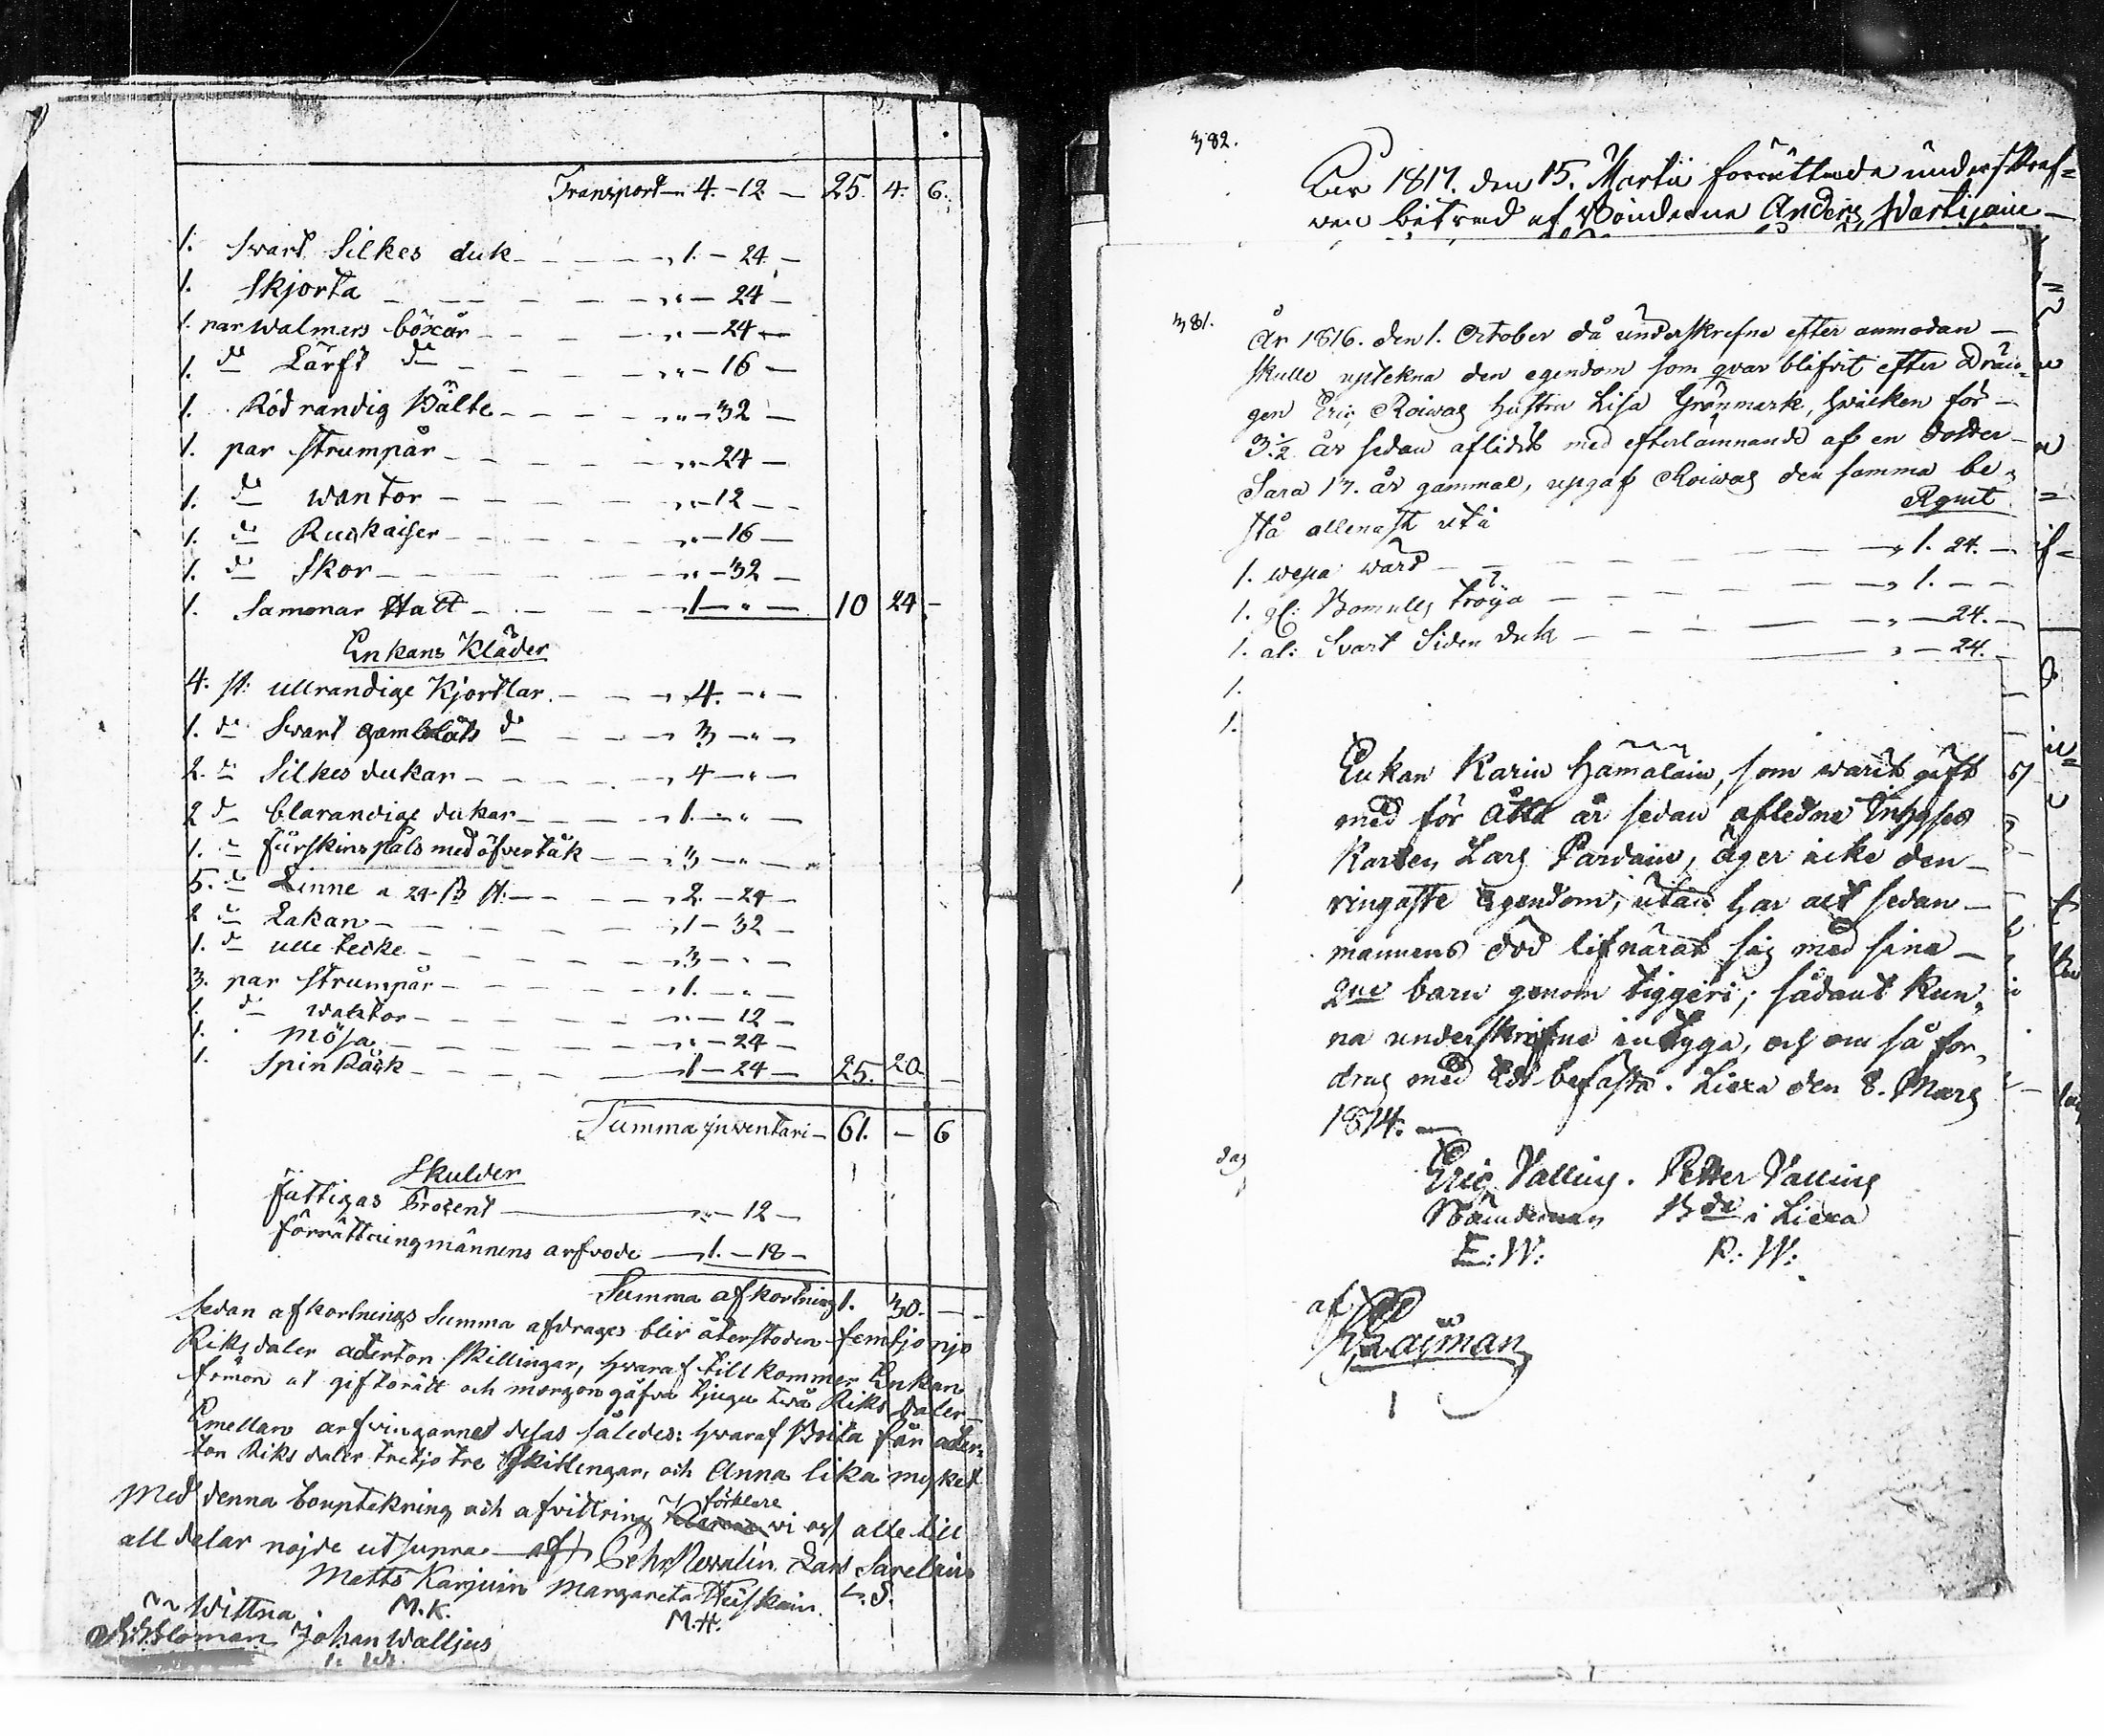 Transport — 4. - 12. — 25. 4. 6.
1. Svart Silkes duk — — — „ 1. — 24. —
1. Skjorta — — — — „ „ — 24 —
1. par walmars böxår — — — „ — 24 —
1. do Lärft do — — — „ „ — 16 —
1. Röd randig Bälte — — — „ „ — 32 —
1. par strumpår — — — „ „ — 24 —
1. do wantor — — — „ „ — 12 —
1. do — — — „ — 16 —
1. do Skor — — — „ — 32 —
1. Hatt — — — 1 — „ — 10 24 —
Enkans Kläder
4. st: ullrandige Kjortlar — — „ 4. — „ —
1. do Svart do — — — „ 3 — „ —
2. do Silkes dukar — — — „ 4 — „ —
2 do blarandige dukar — — — „ 1. — „ —
1. " fürskins påls med öfvertäk — — „ 3 — „ —
5. do Linne a 24 ß st: — — „ 2. — 24 —
2 do Lakan — — — „ 1 — 32 —
1. do ulle tecke — — — „ 3 — „ —
3. par strumpår — — — „ 1. — „ —
1. do wantor — — — „ — 12 —
1. Mösa — — — „ — 24 —
1. Spin Råck — — — 1 — 24 — 25. 20. —
Summa inventari — 61. — 6
Skulder
fattigas Procent — „ — 12 —
förrättningmännens arfvode — „ 1. — 18 —
Summa afkortning 1. 30. —
sedan afkortnings Summa afdrages blir återstoden femtjo njo
Riksdaler aderton skillingar, hvaraf till kommer Enkan
förmon at giftorätt och morgongåfva tjugu två Riks daler
Emellan arfvingarne delas således: hvaraf Brita får ader=
ton Riks daler tretjo tre Skillingar, och Anna lika myket
förklare
Med denna bouptekning och afvittring vi oss alle till
all delar nöjde ut supra — Pehr Lars
Matts Karjuin Margareta L. S.
Wittna M. K. M. H.
Johan Walljus
J. W.
382.
Åar 1817. den 15. Martii förrättade underskref=
ven bitred af Bönderne Anders
381.
År 1816. den 1. October då underskrefne efter anmodan —
skulle uptekna den egendom som qvar blifvit efter Drän=
gen Eric Roiwas hustru Lisa Grönmark, hvilken för —
3 1/2 år sedan aflidit med efterlämnande af en dotter —
Sara 17. år gammal, upgaf Roiwas den samma be=
Rgmt
stå allenast utå
1. wepa wärd — — — „ 1. 24. —
1. gl: Bomulls tröija — — — „ 1. — —
1. al: Svart Siden duk — — — „ — 24. —
„ — 24. —
1.
1.
Enkan Karin Hämäläin, som warit gift
med för Åtta år sedan afledne Inhyses
Karlen Lars Pardain, äger icke den —
ringaste Egendom, utan har alt sedan —
mannens död lifnärat sig med sina —
2ne barn genom tiggeri; sådant kun=
na underskrifne intyga, och om så for=
dras med Ed befästa. Liexa den 8. Mars
1814. —
Eric Valling. Petter Valling
Nämdeman Bde i Liexa
E: W: P: W:
af